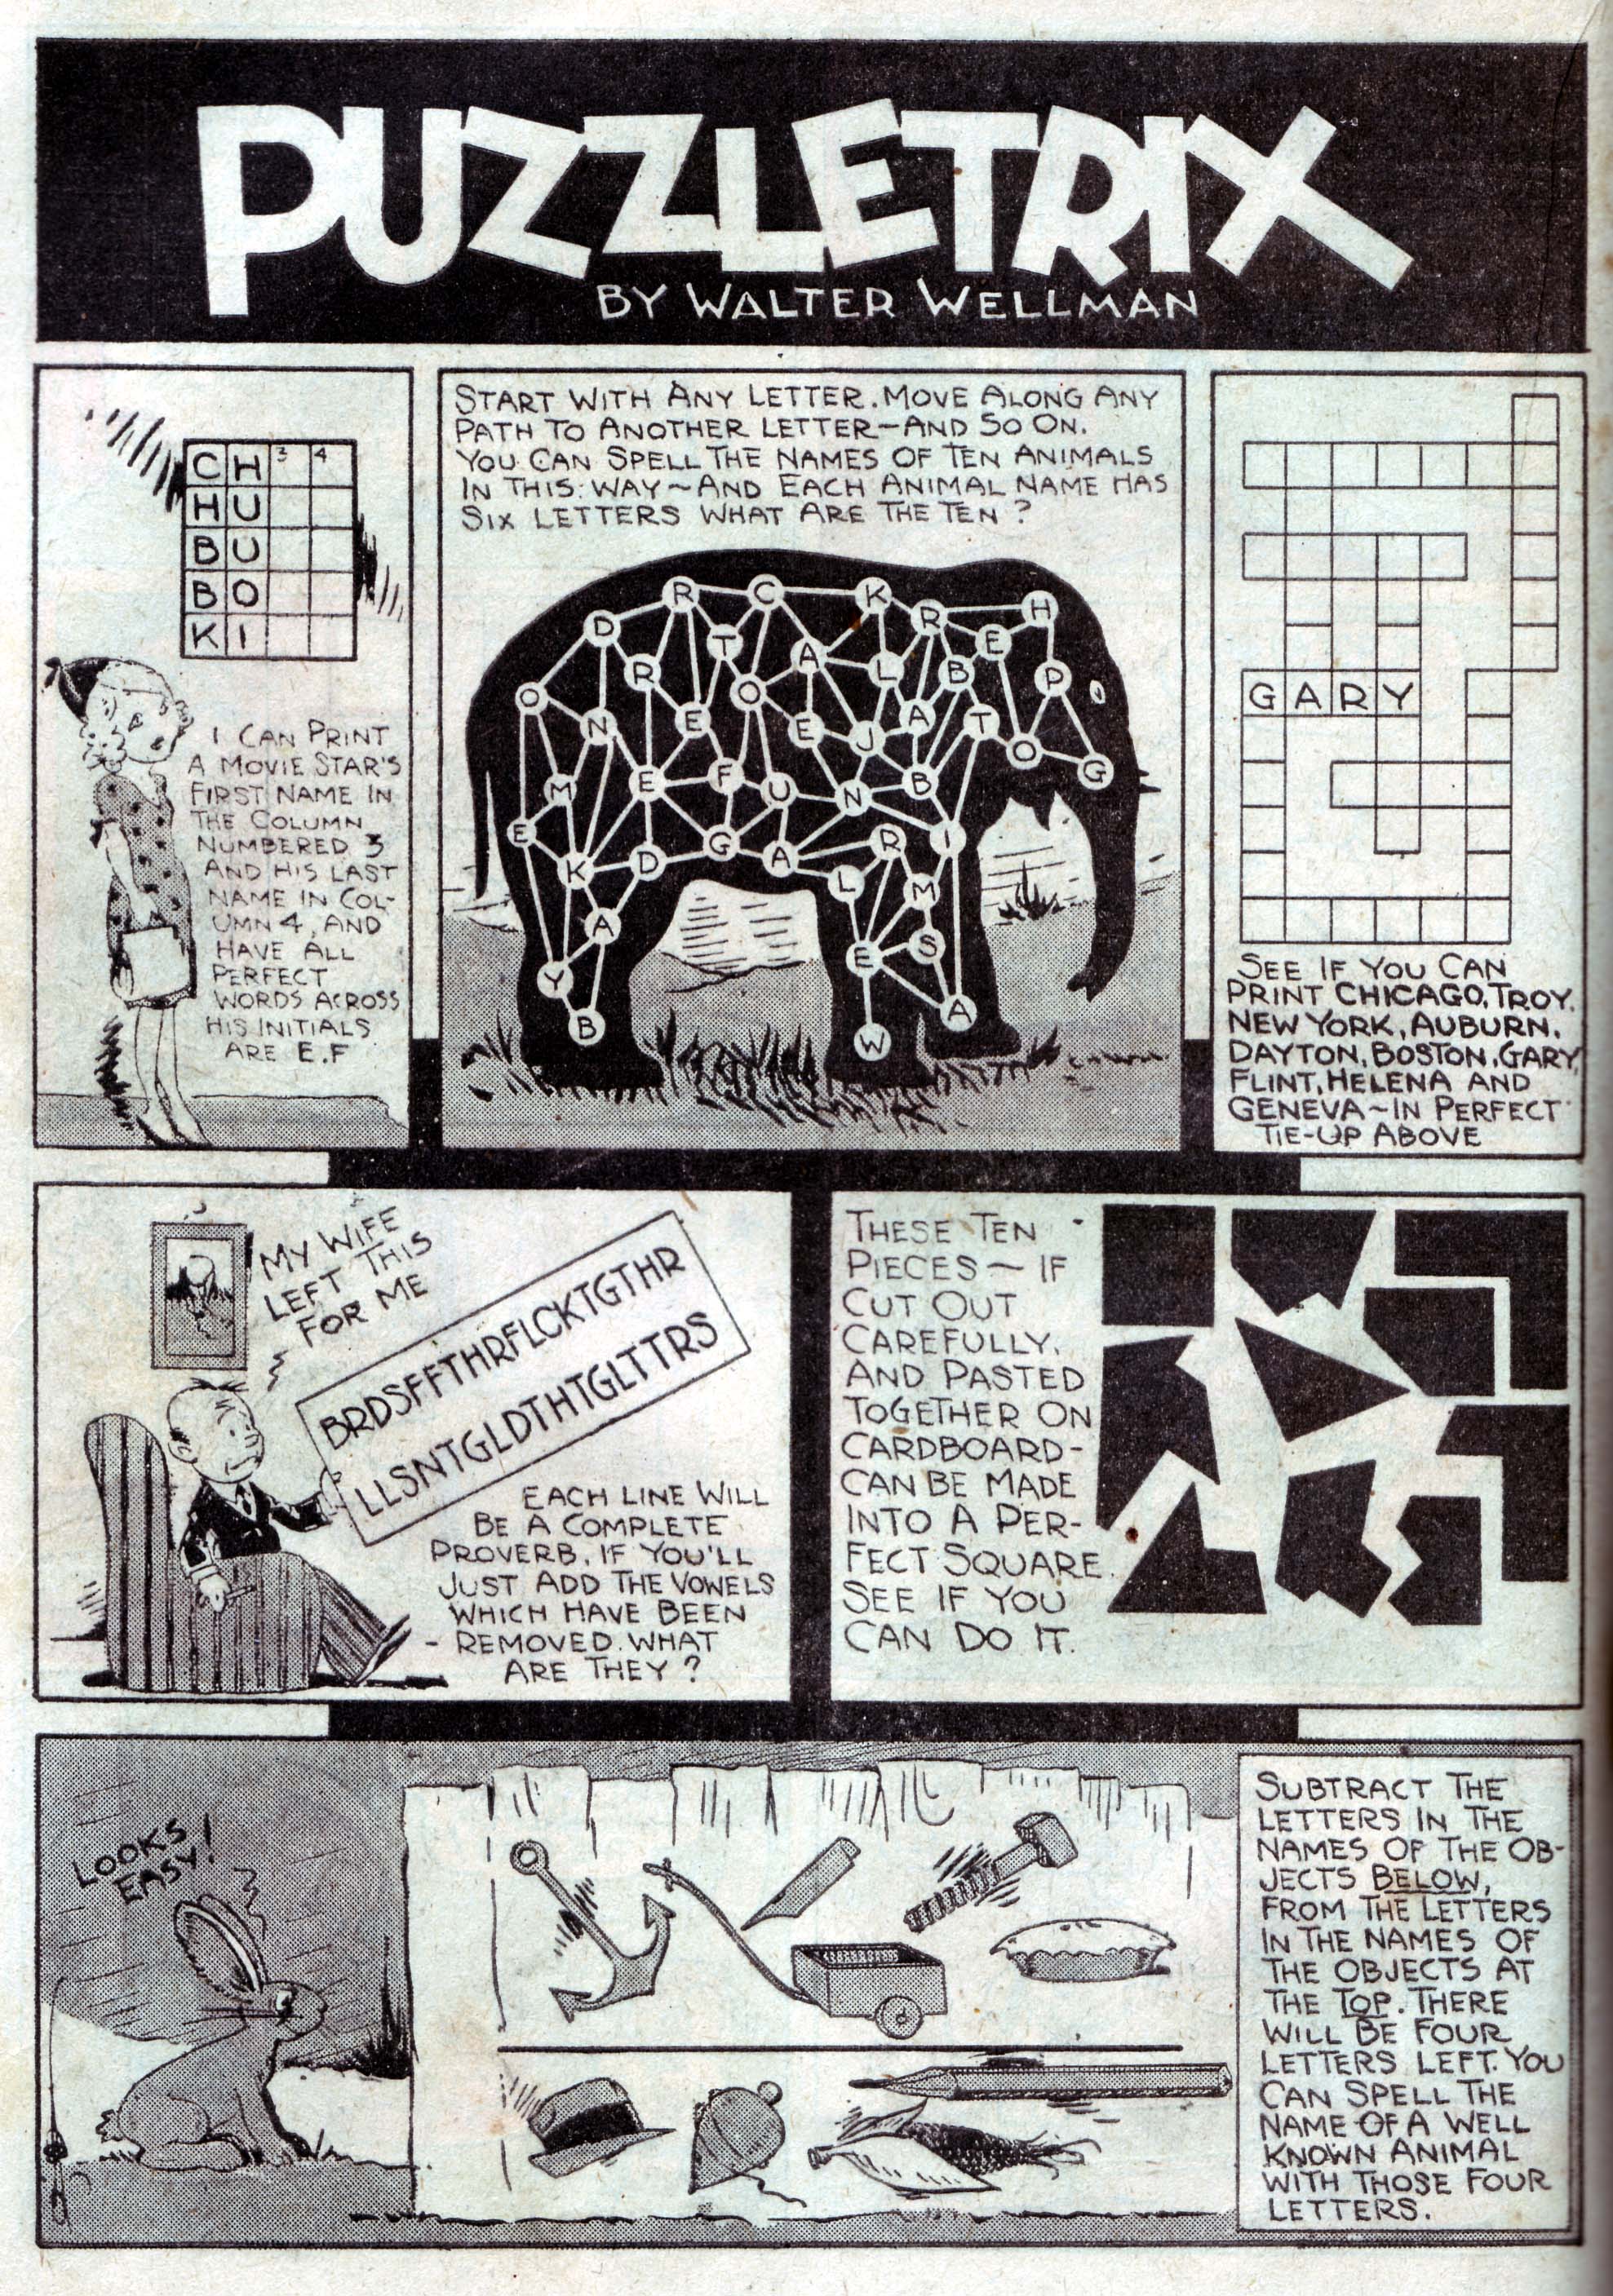 PUZZLETRIX
BY WALTER WELLMAN
C H 3 4
H U
B U
B O
K I
I CAN PRINT
A MOVIE STAR'S
FIRST NAME IN
THE COLUMN
NUMBERED 3
AND HIS LAST
NAME IN COL-
UMN 4, AND
HAVE ALL
PERFECT
WORDS ACROSS
HIS INITIALS
ARE E.F
START WITH ANY LETTER. MOVE ALONG ANY
PATH TO ANOTHER LETTER—AND SO ON.
YOU CAN SPELL THE NAMES OF TEN ANIMALS
IN THIS WAY~AND EACH ANIMAL NAME HAS
SIX LETTERS WHAT ARE THE TEN?
R C K
D R H
T E
A
R L B P
O O
N E E J A T
O
M E F U N B G
E
K D G A R I
L M
A
Y E S
B W A
GARY
SEE IF YOU CAN
PRINT CHICAGO, TROY,
NEW YORK, AUBURN,
DAYTON, BOSTON, GARY,
FLINT, HELENA AND
GENEVA~IN PERFECT
TIE-UP ABOVE
MY WIFE
LEFT THIS
FOR ME
BRDSFFTHRFLCKTGTHR
LLSNTGLDTHTGLTTRS
EACH LINE WILL
BE A COMPLETE
PROVERB, IF YOU'LL
JUST ADD THE VOWELS
WHICH HAVE BEEN
REMOVED. WHAT
ARE THEY?
THESE TEN
PIECES~IF
CUT OUT
CAREFULLY,
AND PASTED
TOGETHER ON
CARDBOARD-
CAN BE MADE
INTO A PER-
FECT SQUARE.
SEE IF YOU
CAN DO IT.
LOOKS
EASY!
SUBTRACT THE
LETTERS IN THE
NAMES OF THE OB-
JECTS BELOW,
FROM THE LETTERS
IN THE NAMES OF
THE OBJECTS AT
THE TOP. THERE
WILL BE FOUR
LETTERS LEFT. YOU
CAN SPELL THE
NAME OF A WELL
KNOWN ANIMAL
WITH THOSE FOUR
LETTERS.